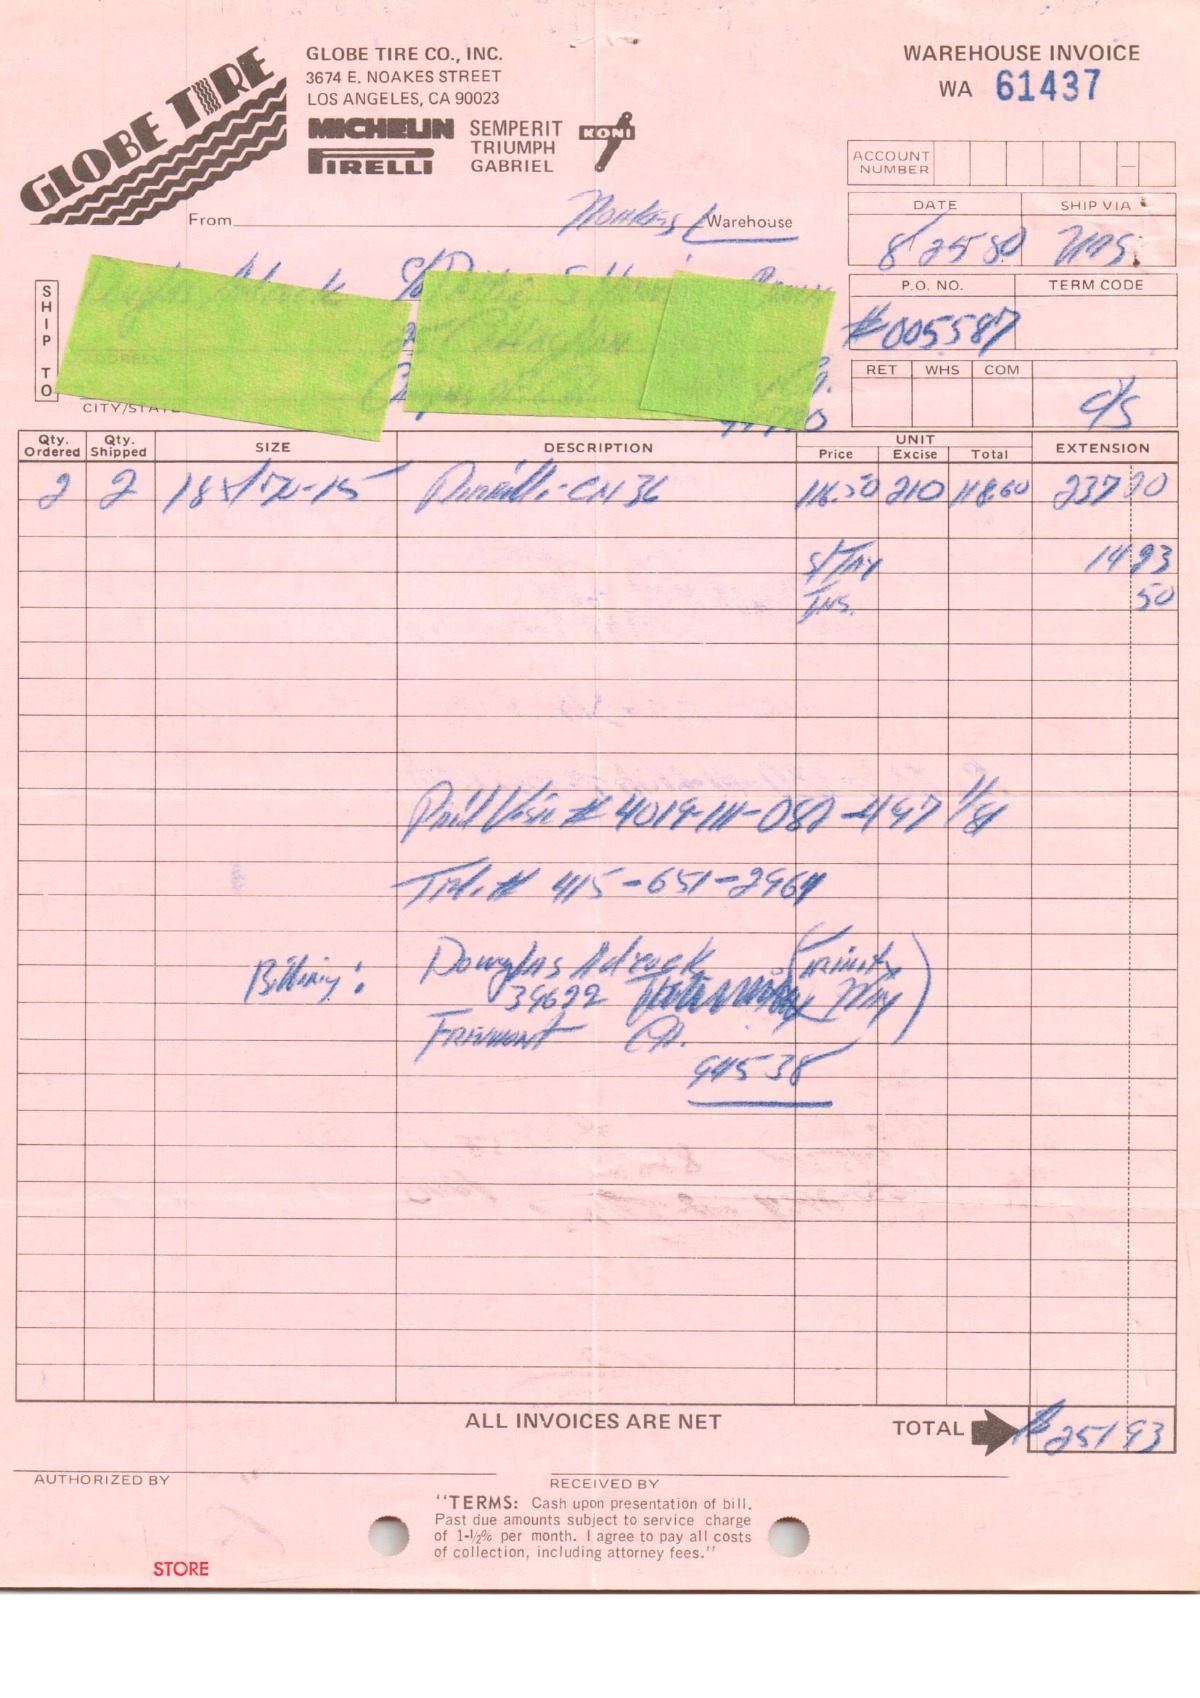 GLOBE TIRE
GLOBE TIRE CO., INC.
3674 E. NOAKES STREET
LOS ANGELES, CA 90023
MICHELIN
PIRELLI
SEMPERIT
TRIUMPH
GABRIEL
KONI
WAREHOUSE INVOICE
WA 61437
ACCOUNT NUMBER
From Noakes Warehouse
DATE SHIP VIA
8/25 80 UPS
P.O. NO. TERM CODE
#005587
RET WHS COM
C/S
SHIP TO
CITY/STATE
Qty. Ordered Qty. Shipped SIZE DESCRIPTION UNIT Price Excise Total EXTENSION
2 2 185/70-15 Pirelli-CN 36 116.50 210 118.60 237 20
S/TAX 14 23
INS. 50
Paid Visa # 4019-111-082-497 1/81
Tel. # 415-651-2964
Billing: Douglas Adrock (Trinity
39622 Way)
Fremont CA.
94538
ALL INVOICES ARE NET
TOTAL $251 93
AUTHORIZED BY
RECEIVED BY
"TERMS: Cash upon presentation of bill.
Past due amounts subject to service charge
of 1-½% per month. I agree to pay all costs
of collection, including attorney fees."
STORE